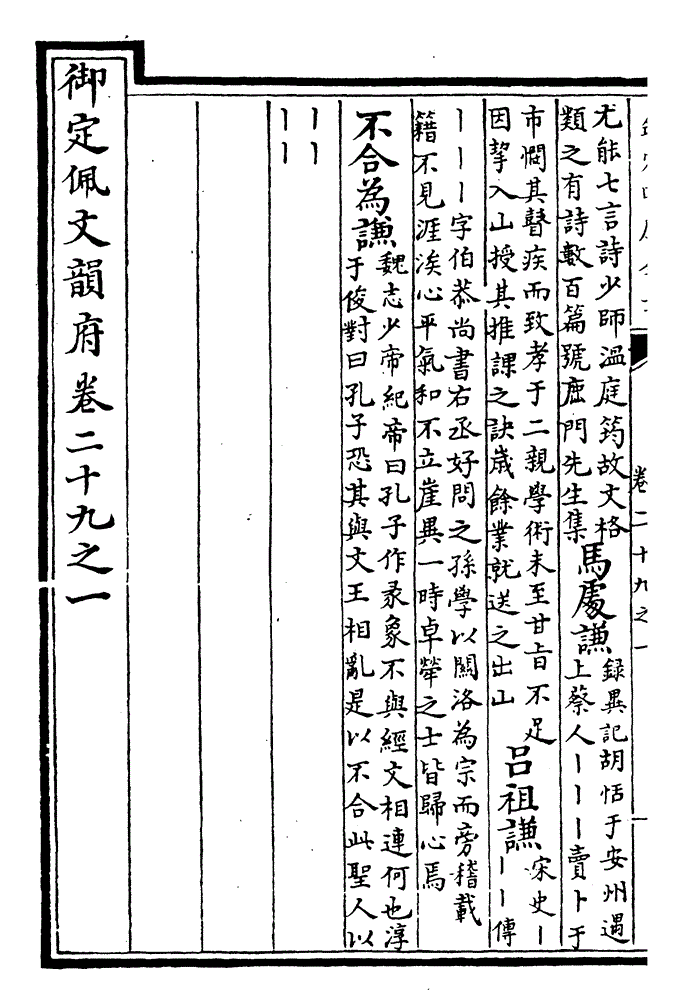 卷二十九之一
尤能七言詩少師溫庭筠故文格
類之有詩數百篇號鹿門先生集
馬處謙
録異記胡恬于安州遇
上蔡人丨丨丨賣卜于
市憫其瞽疾而致孝于二親學術未至甘旨不足
因挈入山授其推課之訣歲餘業就送之出山
呂祖謙
宋史丨
丨丨傳
丨丨丨字伯恭尚書右丞好問之孫學以關洛為宗而旁稽載
籍不見涯涘心平氣和不立崖異一時卓犖之士皆歸心焉
不合為謙
魏志少帝紀帝曰孔子作彖象不與經文相連何也淳
于俊對曰孔子恐其與文王相亂是以不合此聖人以
丨丨
丨丨
御定佩文韻府卷二十九之一